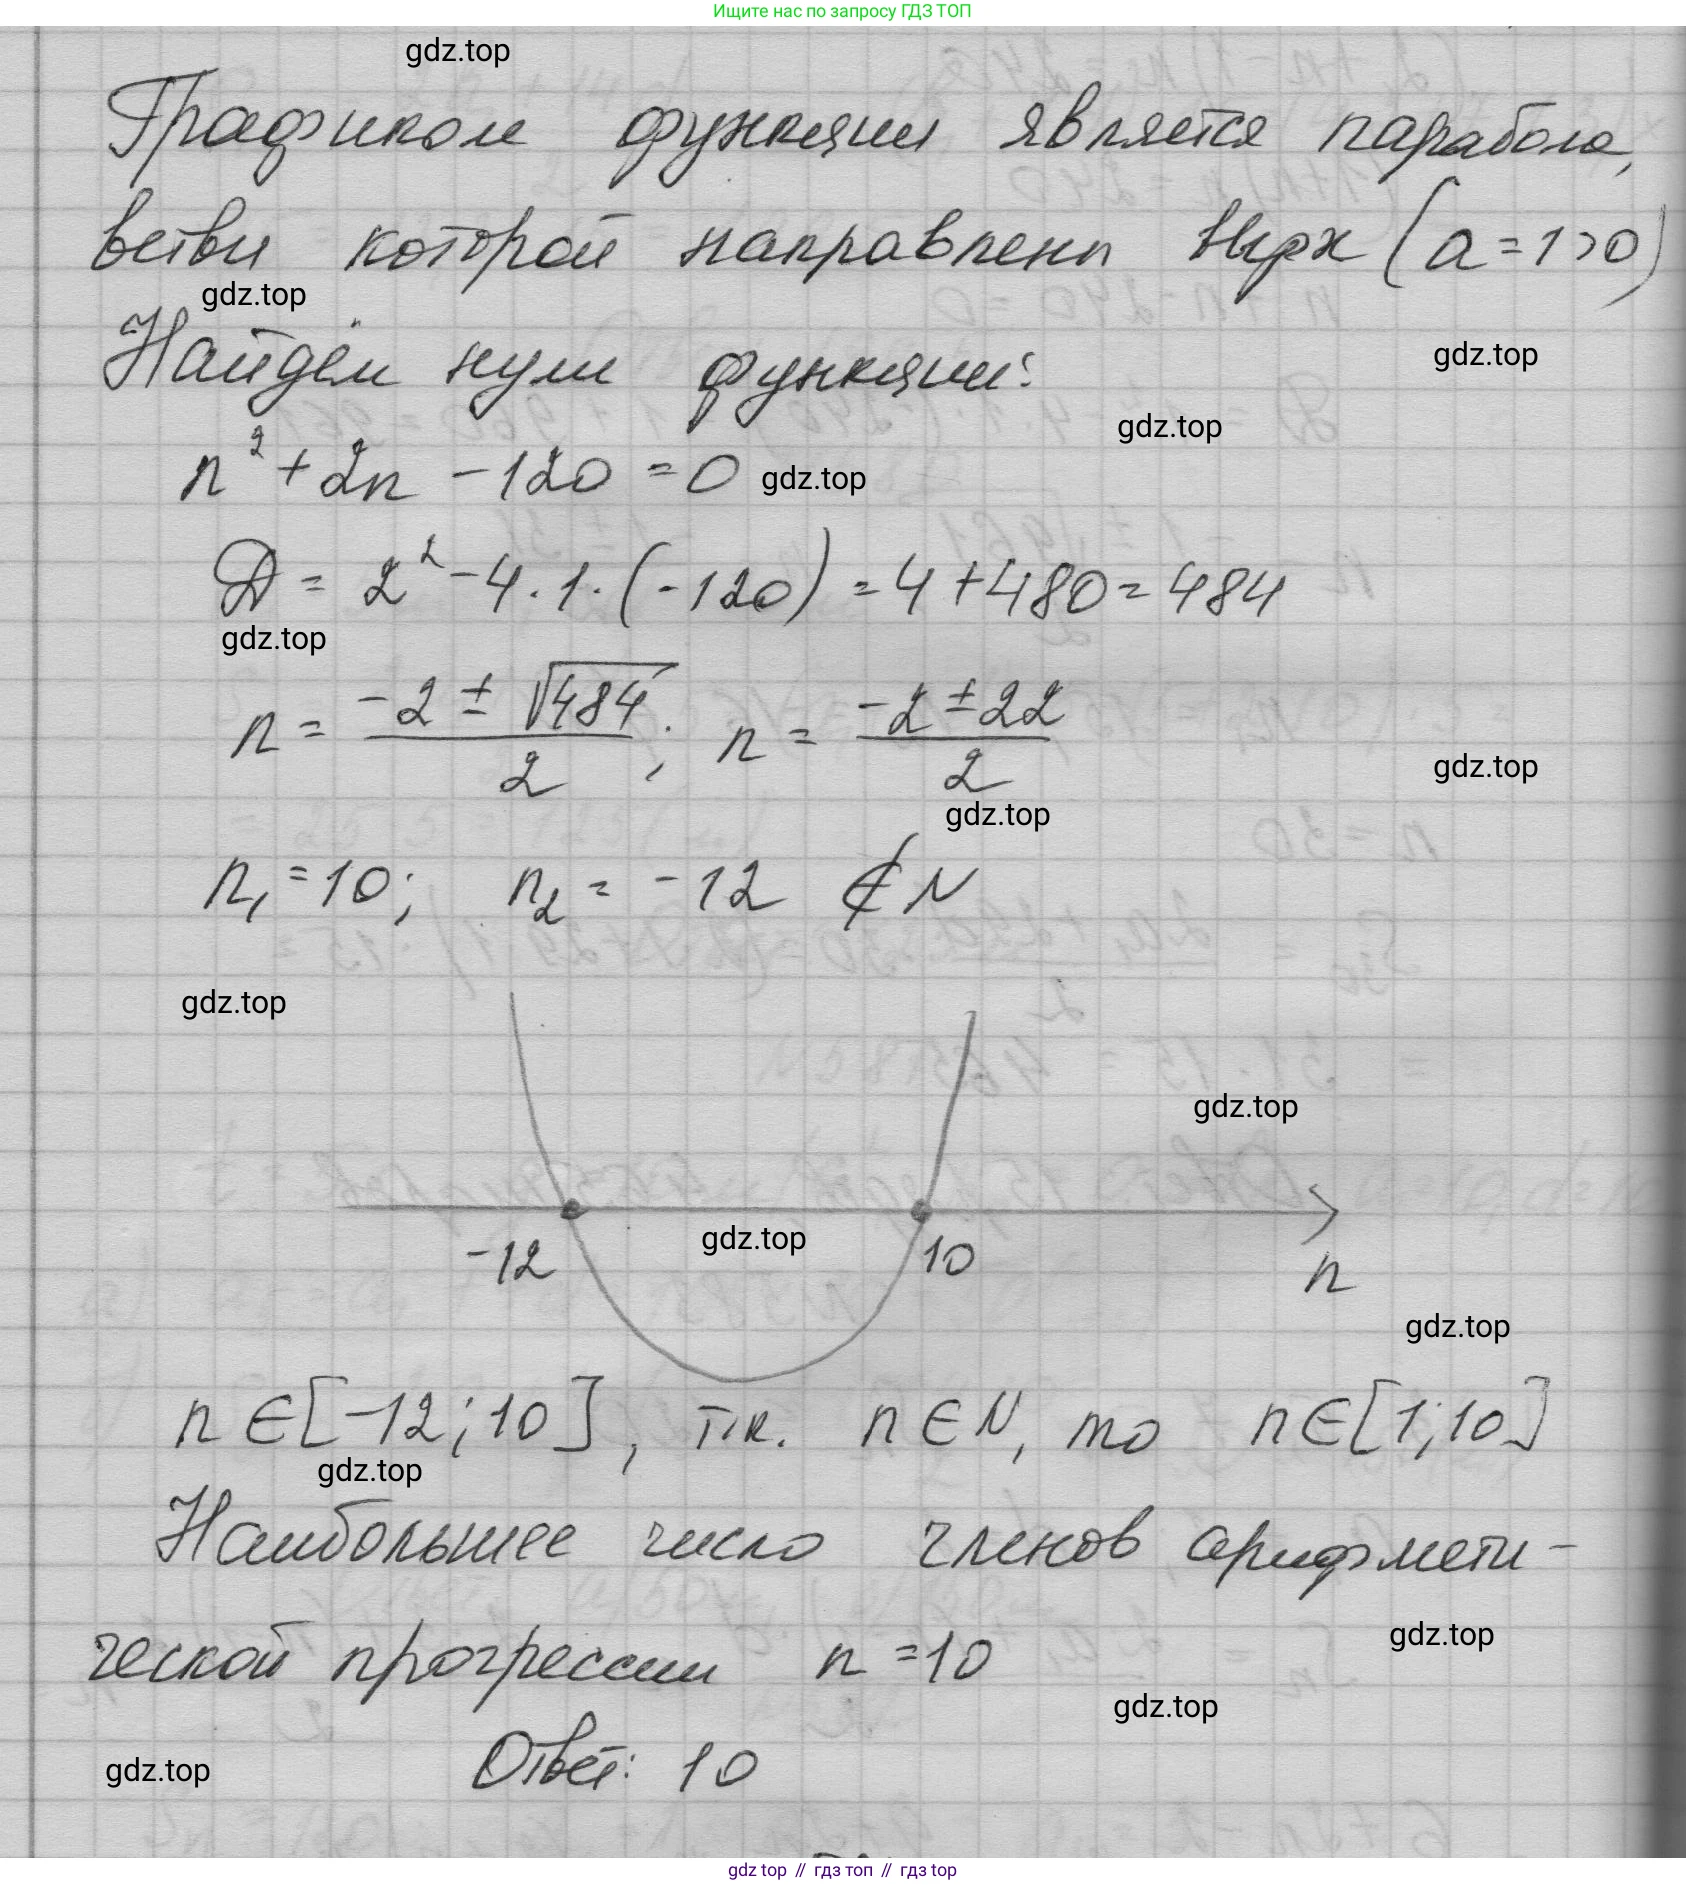 Ищите нас по запросу ГДЗ ТОП
gdz.top
Графиком функции является парабола,
ветви которой направлены вверх (a = 1 > 0)
gdz.top
Найдём нули функции:
gdz.top
gdz.top
n² + 2n - 120 = 0 gdz.top
D = 2² - 4 · 1 · (-120) = 4 + 480 = 484
gdz.top
n = (-2 ± √484)/2 ; n = (-2 ± 22)/2
gdz.top
gdz.top
n₁ = 10; n₂ = -12 ∉ N
gdz.top
gdz.top
gdz.top
-12 10 n
gdz.top
n ∈ [-12; 10], т.к. n ∈ N, то n ∈ [1; 10]
gdz.top
Наибольшее число членов арифмети-
ческой прогрессии n = 10
gdz.top
gdz.top
Ответ: 10
gdz.top
gdz top // гдз топ // gdz top